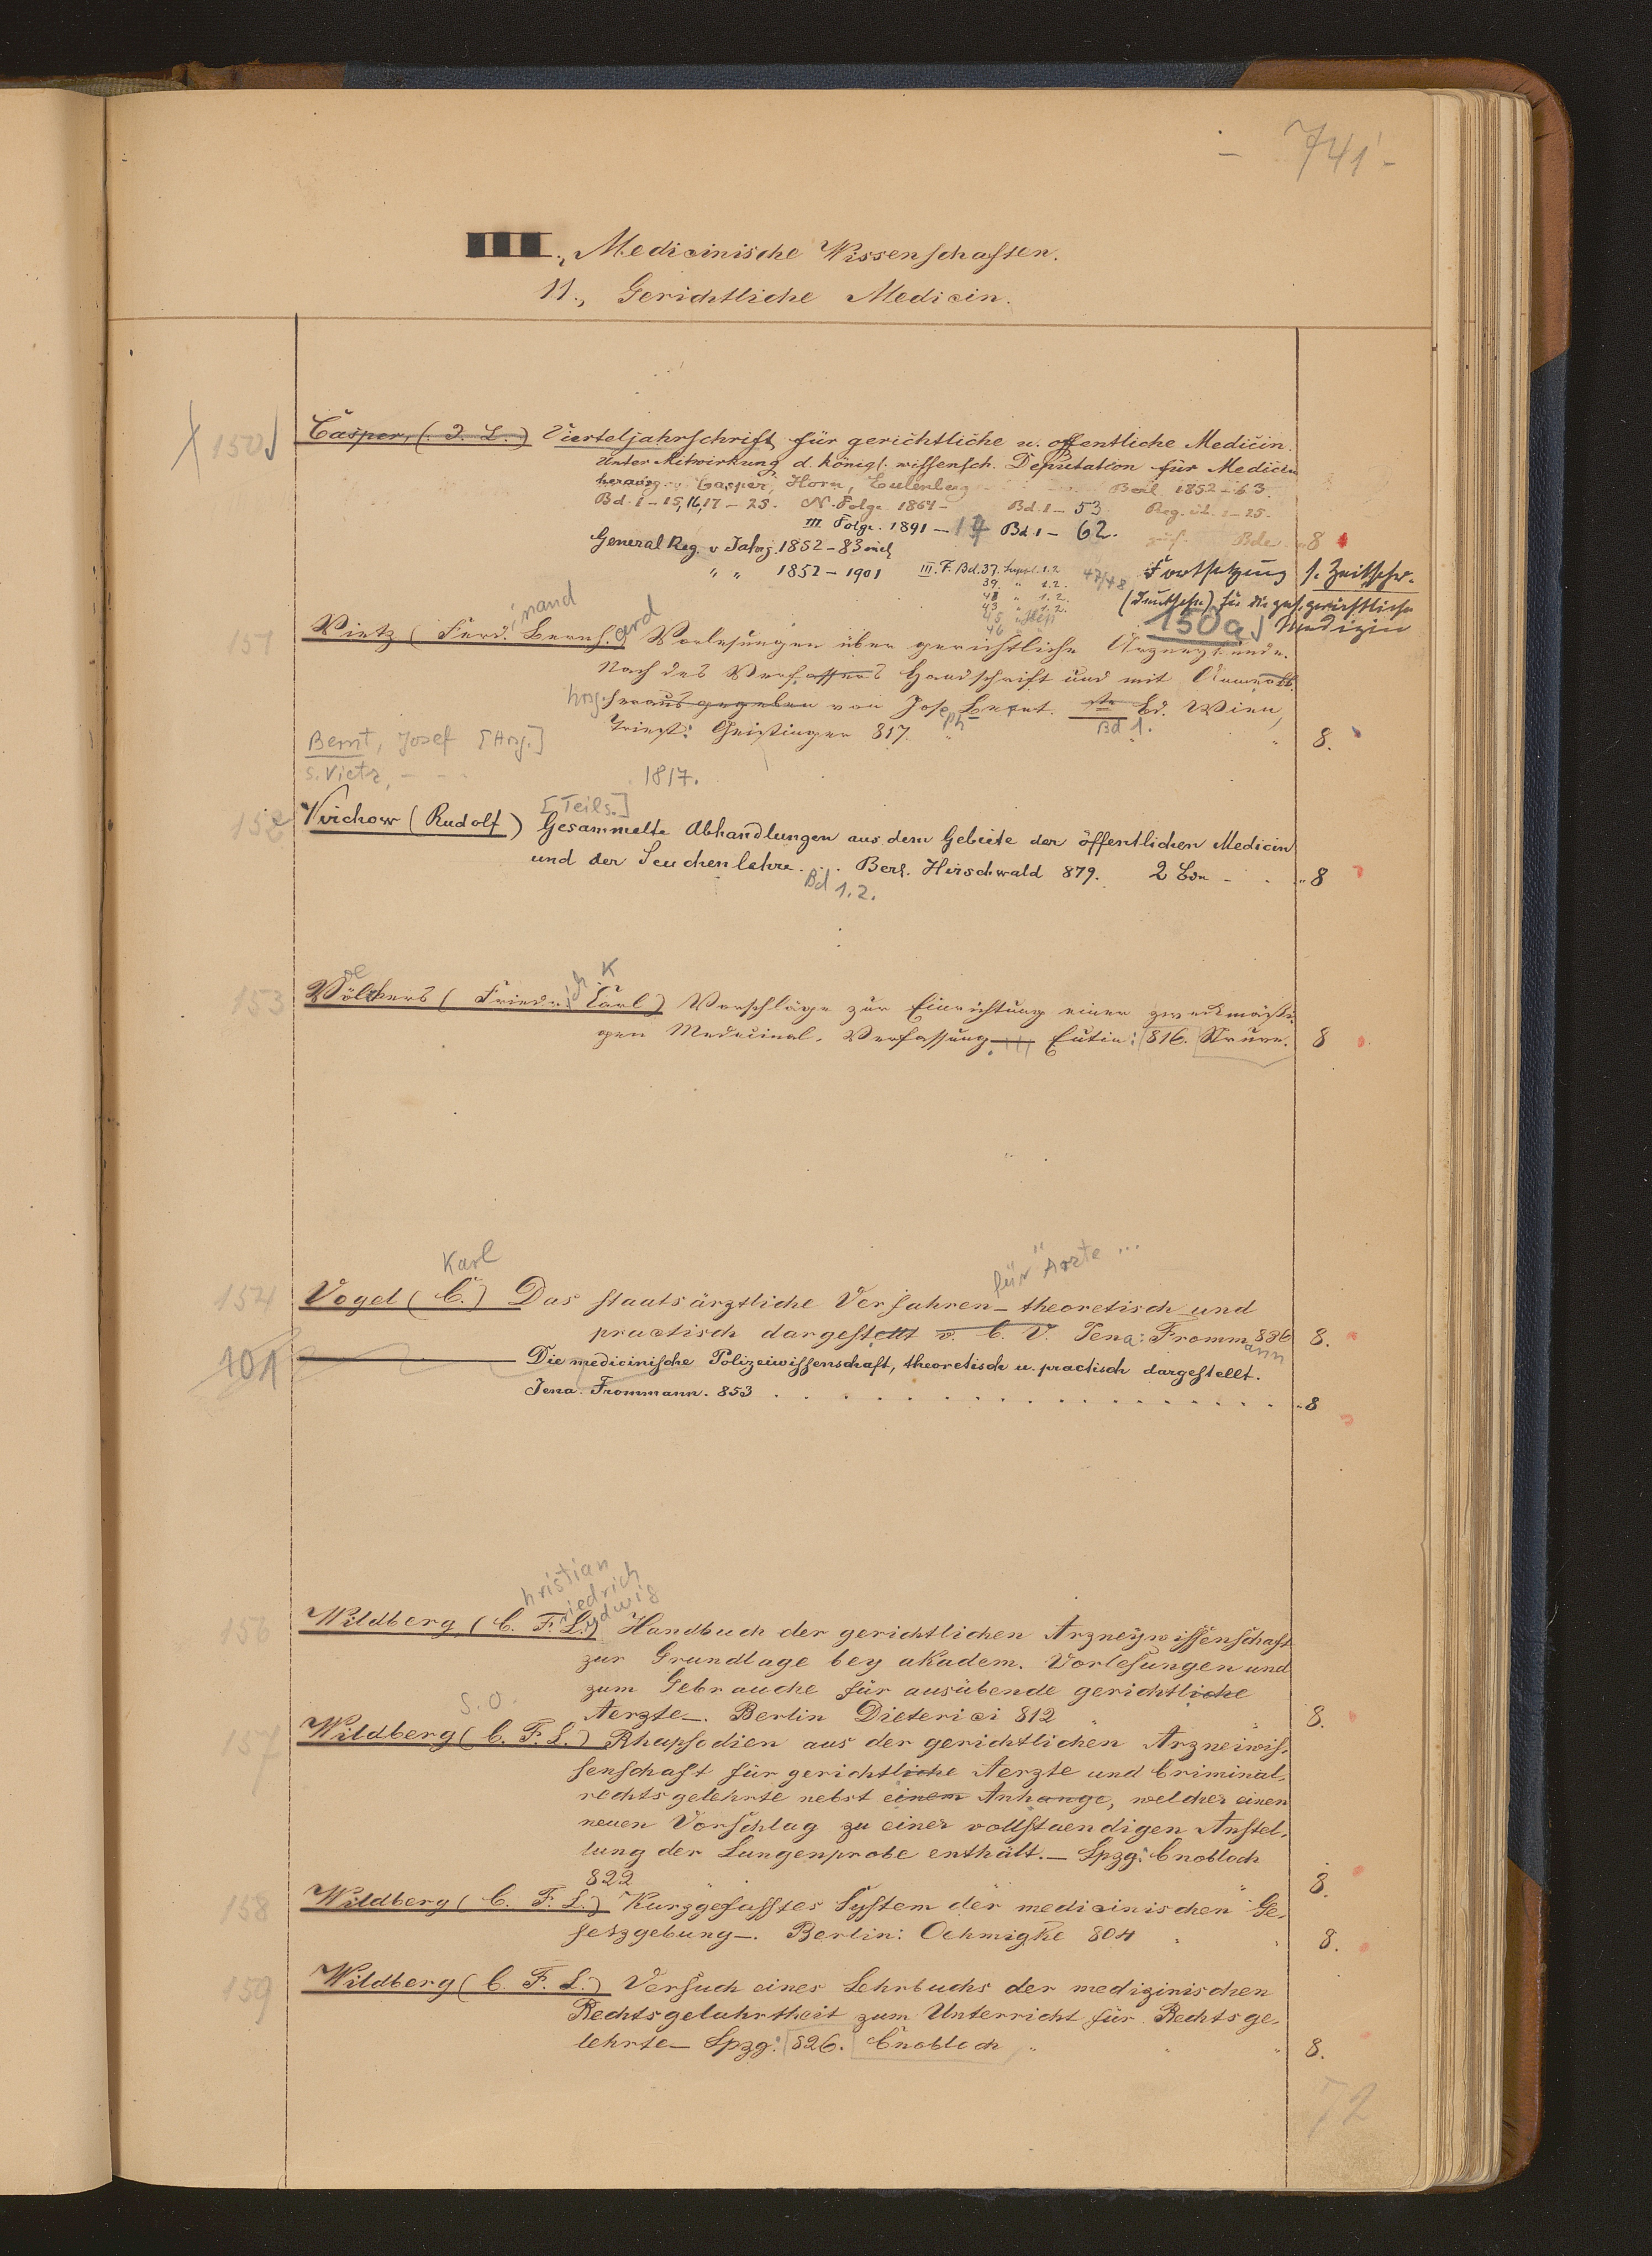 - 741 -
III., Medicinische Wissenschaften.
11., Gerichtliche Medicin.
150 Casper, (J. L.) Vierteljahrschrift für gerichtliche u. öffentliche Medicin.
Unter Mitwirkung d. königl. wissensch. Deputation für Medicin
herausg. v. Casper, Horn, Eulenberg Berl. 1852-63.
Bd. 1-15, 16, 17-25. N. Folge 1864- Bd. 1-53. Reg. 1-25.
III Folge. 1891- Bd. 1-62. Bde 8
General Reg. v Jahrg. 1852-83
" " 1852-1901 III. F. Bd. 37. Suppl. 1.2 47/48 Fortsetzung s. Zeitschr.
39 " 1.2.
41 " 1.2. (Deutsche) für die ges. gerichtliche
43 " 1.2.
45 150a Medizin
46
inand ard
151 Vietz (Ferd. Bernh.) Vorlesungen über gerichtliche Arzneykunde.
Nach des Verfassers Handschrift und mit
hrsg. herausgegeben von Joseph Bernt. Bd. Wien,
Triest: Geistinger 817. Bd 1. 8.
Bernt, Josef [Hrsg.]
s. Vietz, - -
1817.
[Teils.]
152 Virchow (Rudolf) Gesammelte Abhandlungen aus dem Gebiete der öffentlichen Medicin
und der Seuchenlehre . . Berl. Hirschwald 879. 2 Bde - . " 8
Bd 1.2.
oe ich K
153 Völckers (Friedr. Carl) Vorschläge zur Einrichtung einer zweckmässi-
gen Medicinal-Verfassung Eutin: 816. Struve. 8
Karl für Ärzte ...
154 Vogel (C.) Das staatsärztliche Verfahren - theoretisch und
practisch dargestellt v. C. V. Jena: Frommann 836 8.
101 Die medicinische Polizeiwissenschaft, theoretisch u. practisch dargestellt.
Jena. Frommann. 853 . . . . . . . . . . . . . . " 8
hristian
riedrich
udwig
156 Wildberg, (C. F. L.) Handbuch der gerichtlichen Arzneywissenschaft
zur Grundlage bey akadem. Vorlesungen und
zum Gebrauche für ausübende gerichtliche
Aerzte-. Berlin Dieterici 812 " " 8.
s. o.
157 Wildberg (C. F. L.) Rhapsodien aus der gerichtlichen Arzneiwis-
senschaft für gerichtliche Aerzte und Criminal-
rechtsgelehrte nebst einem Anhange, welcher einen
neuen Vorschlag zu einer vollstaendigen Anstel-
lung der Lungenprobe enthält.- Lpzg: Cnobloch
822 " 8.
158 Wildberg (C. F. L.) Kurzgefasstes System der medicinischen Ge-
setzgebung-. Berlin: Oehmigke 804 " " 8.
159 Wildberg (C. F. L.) Versuch eines Lehrbuchs der medizinischen
Rechtsgelahrtheit zum Unterricht für Rechtsge-
lehrte- Lpzg: 826. Cnobloch " " " 8.
72